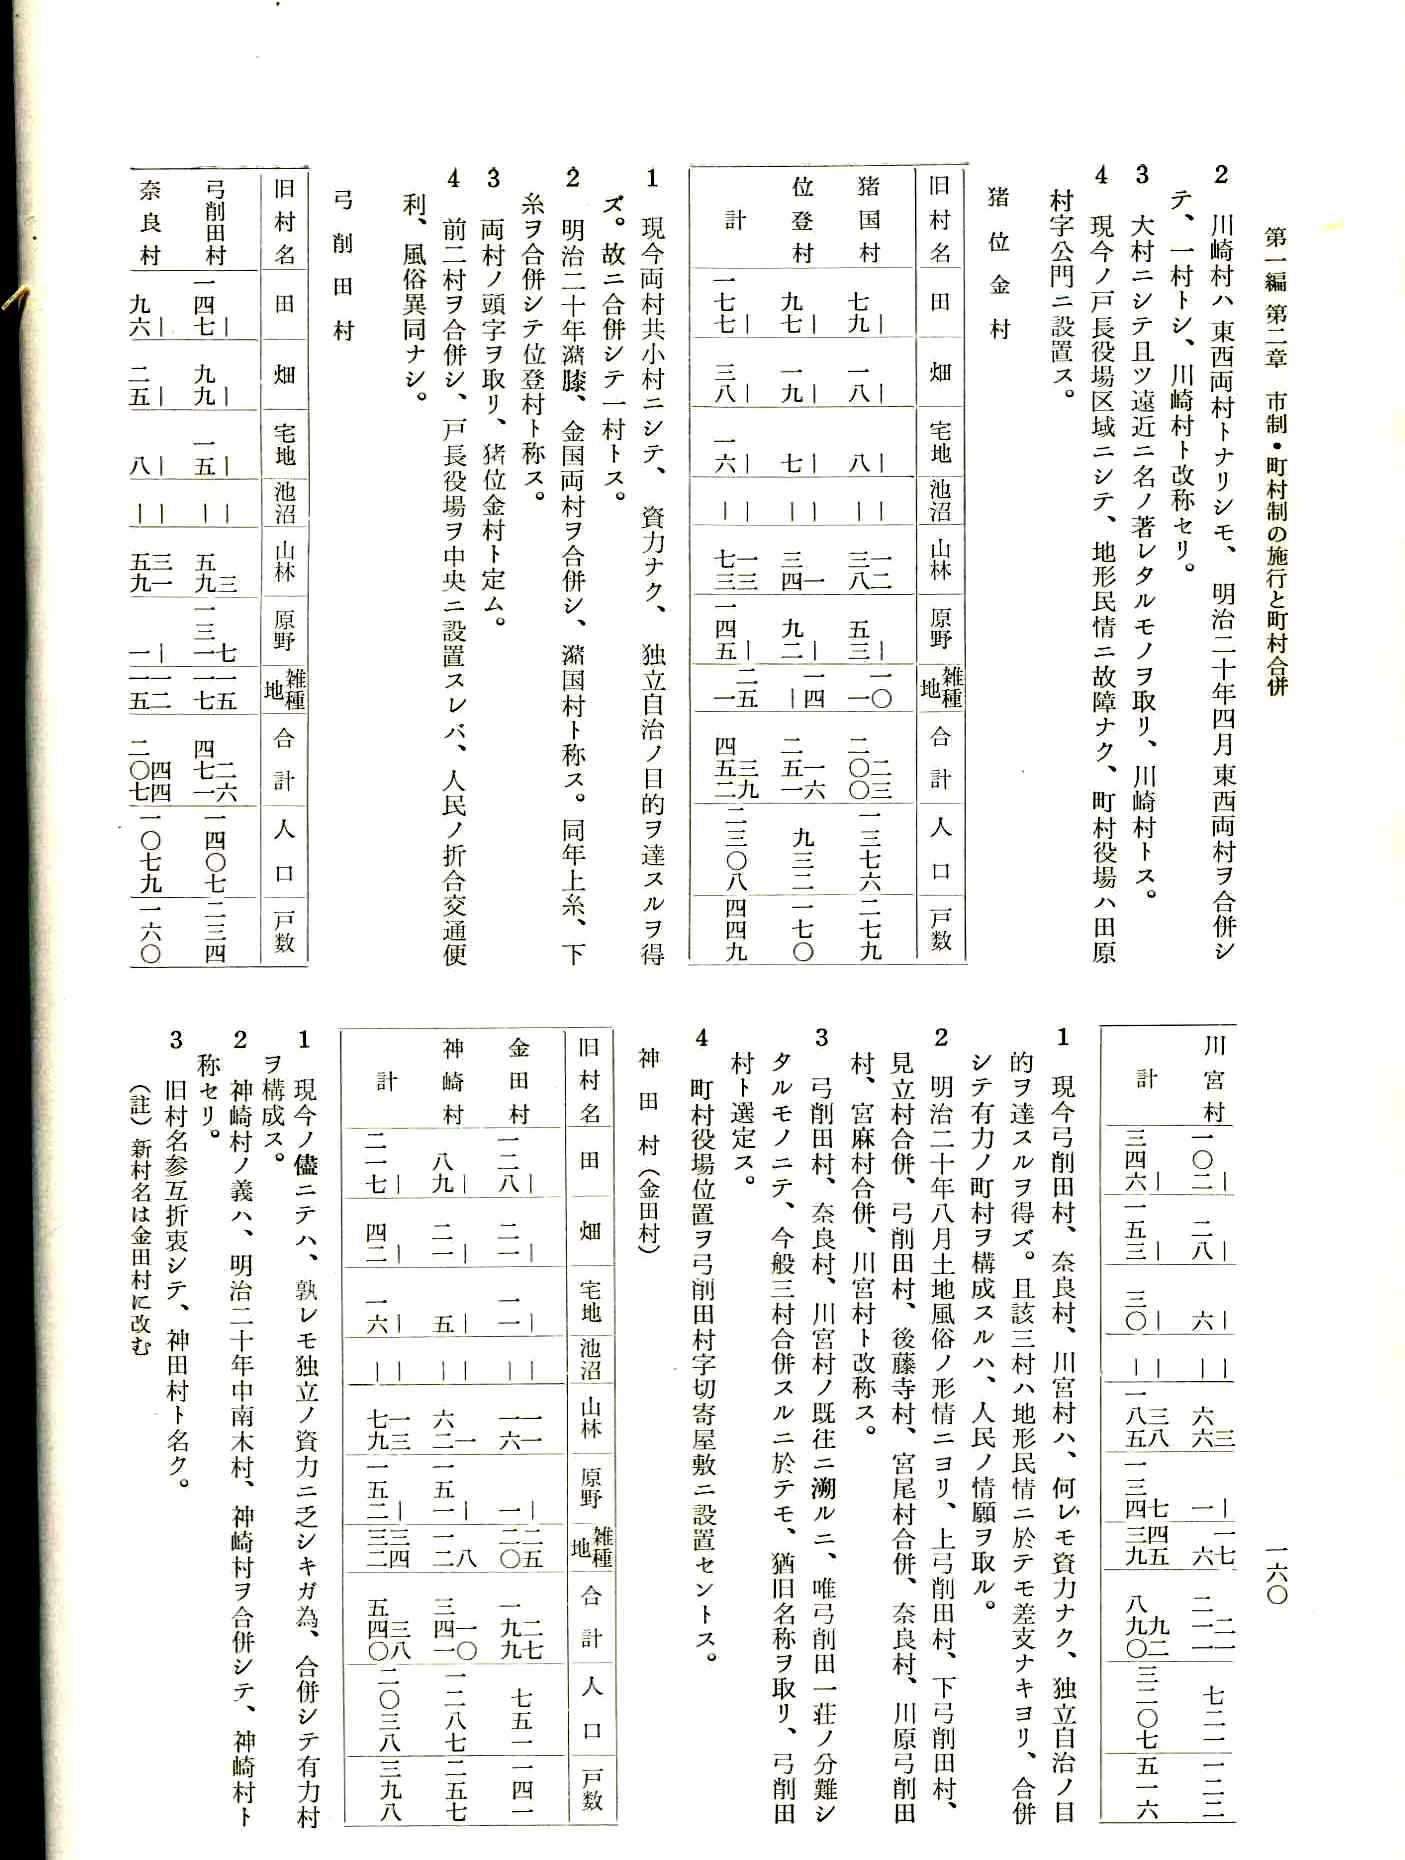 第一編 第二章 市制・町村制の施行と町村合併
一六〇
2 川崎村ハ東西両村トナリシモ、明治二十年四月東西両村ヲ合併シ
テ、一村トシ、川崎村ト改称セリ。
3 大村ニシテ且ツ遠近ニ名ノ著レタルモノヲ取リ、川崎村トス。
4 現今ノ戸長役場区域ニシテ、地形民情ニ故障ナク、町村役場ハ田原
村字公門ニ設置ス。
猪位金村
旧村名 田 畑 宅地 池沼 山林 原野 雑種地 合計 人口 戸数
｜ ｜ ｜ ｜ 一二 ｜ 一〇 二三
猪国村 七九 一八 八 ｜ 三八 五三 一 二〇〇 一三七六 二七九
｜ ｜ ｜ ｜ 一 ｜ 一四 一六
位登村 九七 一九 七 ｜ 三四 九二 ｜ 二五一 九三二 一七〇
｜ ｜ ｜ ｜ 一三 ｜ 二五 三九
計 一七七 三八 一六 ｜ 七三 一四五 一 四五二 二三〇八 四四九
1 現今両村共小村ニシテ、資力ナク、独立自治ノ目的ヲ達スルヲ得
ズ。故ニ合併シテ一村トス。
2 明治二十年猪膝、金国両村ヲ合併シ、猪国村ト称ス。同年上糸、下
糸ヲ合併シテ位登村ト称ス。
3 両村ノ頭字ヲ取リ、猪位金村ト定ム。
4 前二村ヲ合併シ、戸長役場ヲ中央ニ設置スレバ、人民ノ折合交通便
利、風俗異同ナシ。
弓削田村
旧村名 田 畑 宅地 池沼 山林 原野 雑種地 合計 人口 戸数
｜ ｜ ｜ ｜ 三 七 一五 二六
弓削田村 一四七 九九 一五 ｜ 五九 一三一 一七 四七一 一四〇七 二三四
｜ ｜ ｜ ｜ 三一 ｜ 一二 四四
奈良村 九六 二五 八 ｜ 五九 一 一五 二〇七 一〇七九 一六〇
｜ ｜ ｜ ｜ 三 ｜ 一七 二一
川宮村 一〇二 二八 六 ｜ 六六 一 六 二一一 七二一 一二二
｜ ｜ ｜ ｜ 三八 七 四五 九二
計 三四六 一五三 三〇 ｜ 一八五 一三四 三九 八九〇 三二〇七 五一六
1 現今弓削田村、奈良村、川宮村ハ、何レモ資力ナク、独立自治ノ目
的ヲ達スルヲ得ズ。且該三村ハ地形民情ニ於テモ差支ナキヨリ、合併
シテ有力ノ町村ヲ構成スルハ、人民ノ情願ヲ取ル。
2 明治二十年八月土地風俗ノ形情ニヨリ、上弓削田村、下弓削田村、
見立村合併、弓削田村、後藤寺村、宮尾村合併、奈良村、川原弓削田
村、宮麻村合併、川宮村ト改称ス。
3 弓削田村、奈良村、川宮村ノ既往ニ溯ルニ、唯弓削田一荘ノ分難シ
タルモノニテ、今般三村合併スルニ於テモ、猶旧名称ヲ取リ、弓削田
村ト選定ス。
4 町村役場位置ヲ弓削田村字切寄屋敷ニ設置セントス。
神田村（金田村）
旧村名 田 畑 宅地 池沼 山林 原野 雑種地 合計 人口 戸数
｜ ｜ ｜ ｜ 一一 ｜ 二五 二七
金田村 一二八 二一 一一 ｜ 一六 一 二〇 一九九 七五一 一四一
｜ ｜ ｜ ｜ 一 ｜ 八 一〇
神崎村 八九 二一 五 ｜ 六二 一五一 一二 三四一 一二八七 二五七
｜ ｜ ｜ ｜ 一三 ｜ 三四 三八
計 二一七 四二 一六 ｜ 七九 一五二 三二 五四〇 二〇三八 三九八
1 現今ノ儘ニテハ、孰レモ独立ノ資力ニ乏シキガ為、合併シテ有力村
ヲ構成ス。
2 神崎村ノ義ハ、明治二十年中南木村、神崎村ヲ合併シテ、神崎村ト
称セリ。
3 旧村名参互折衷シテ、神田村ト名ク。
（註）新村名は金田村に改む